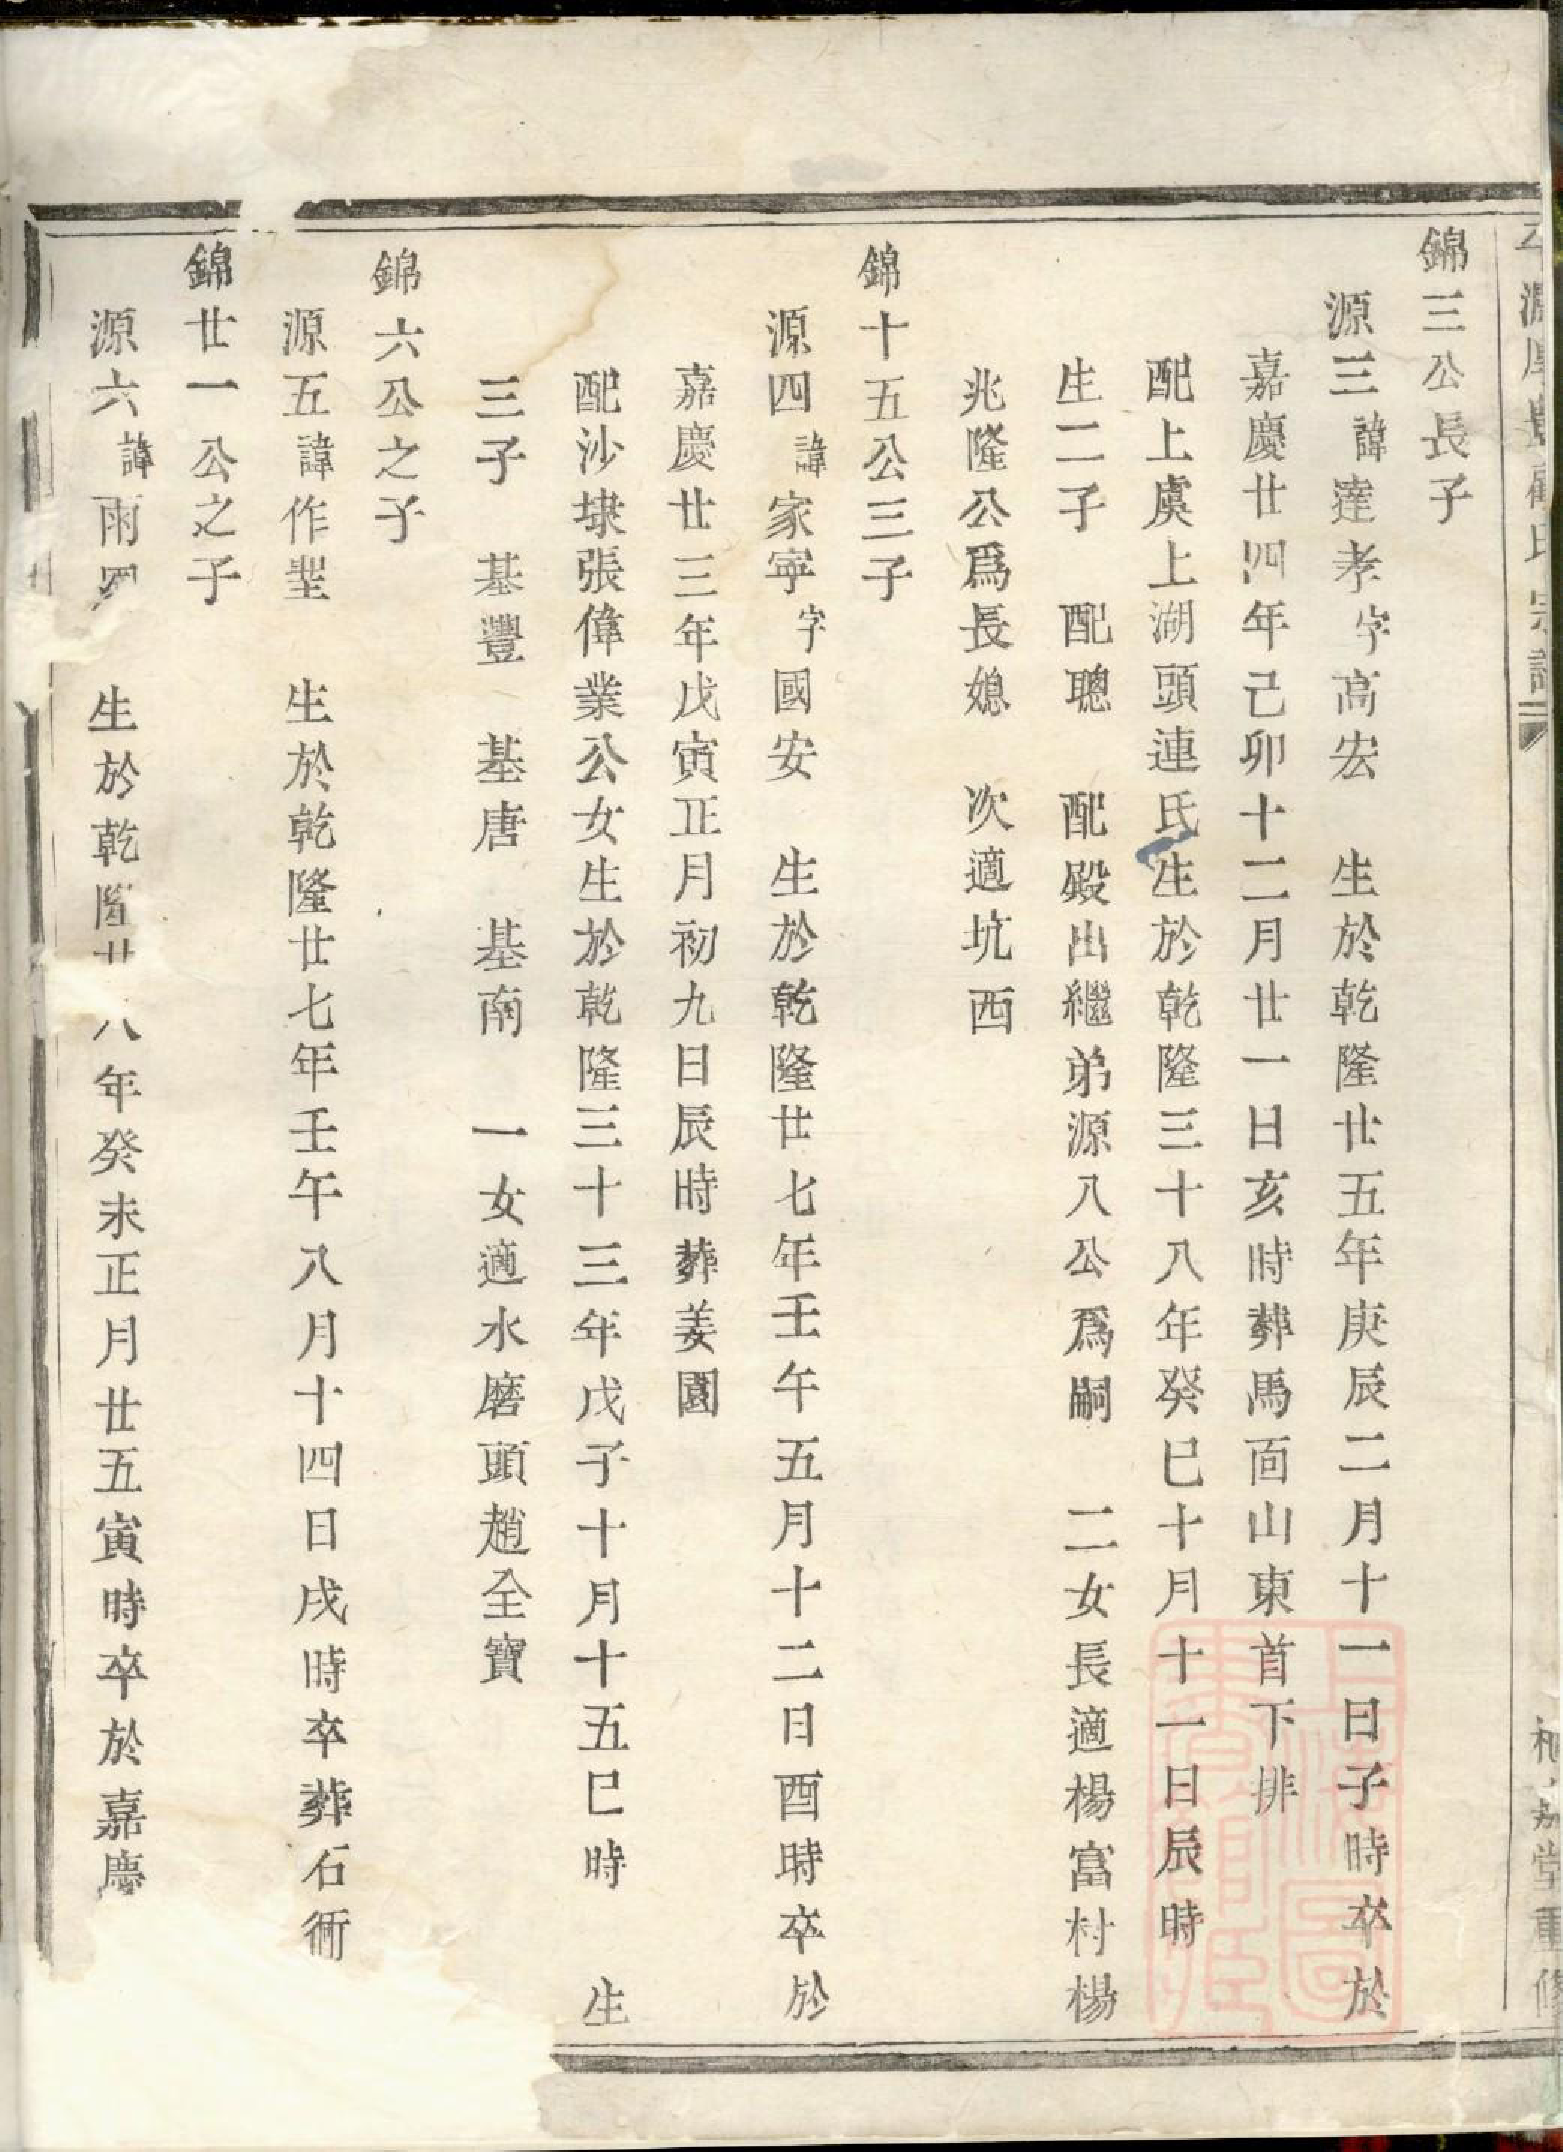 錦三公長子
源三諱達孝字高宏 生於乾隆廿五年庚辰二月十一日子時卒於
嘉慶廿四年己卯十二月廿一日亥時葬馬面山東首下排
配上虞上湖頭連氏生於乾隆三十八年癸巳十月十一日辰時
生二子 配聰 配殿出繼弟源八公爲嗣 二女長適楊富村楊
兆隆公爲長媳 次適坑西
錦十五公三子
源四諱家寧字國安 生於乾隆廿七年壬午五月十二日酉時卒於
嘉慶廿三年戊寅正月初九日辰時葬姜園
配沙埭張偉業公女生於乾隆三十三年戊子十月十五巳時 生
三子 基豐 基唐 基南 一女適水磨頭趙全寶
錦六公之子
源五諱作垩 生於乾隆廿七年壬午八月十四日戌時卒葬石衕
錦廿一公之子
源六諱雨 生於乾隆廿八年癸未正月廿五寅時卒於嘉慶